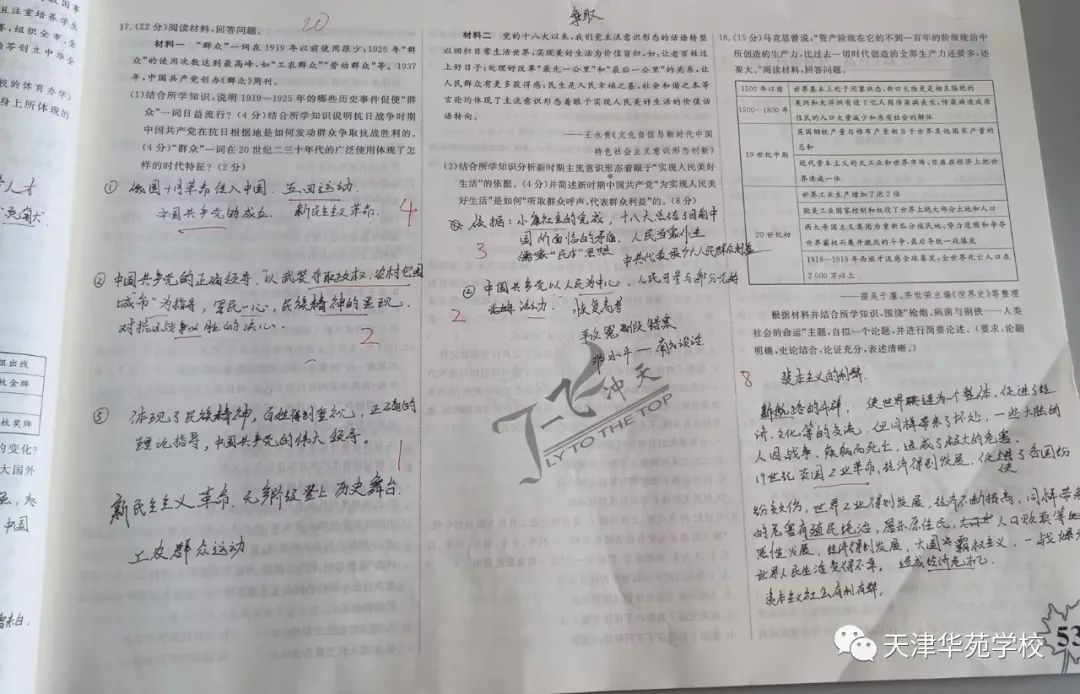 17.(22分)阅读材料,回答问题。
20
材料一 “群众”一词在1919年以前使用很少;1925年“群
众”的使用次数达到最高峰,如“工农群众”“劳动群众”等。1937
年,中国共产党创办《群众》周刊。
(1)结合所学知识,说明1919—1925年的哪些历史事件促使“群
众”一词日益流行?(4分)结合所学知识说明抗日战争时期
中国共产党在抗日根据地是如何发动群众争取抗战胜利的。
(4分)“群众”一词在20世纪二三十年代的广泛使用体现了怎
样的时代特征?(2分)
① 俄国十月革命传入中国. 五四运动.
中国共产党的成立. 新民主主义革命.
4
② 中国共产党的正确领导,“以武装夺取政权,农村包围
城市”为指导,军民一心,民族精神的显现.
对抗日战争必胜的决心.
2
③ 体现了民族精神,百姓得到重视,正确的
理论指导,中国共产党的伟大领导。
1
新民主主义革命,无产阶级登上历史舞台.
工农群众运动
材料二 党的十八大以来,我们党主流意识形态的话语转型
以回归日常生活世界、实现美好生活为价值旨归,如,让老百姓过
上好日子;处理好改革“最先一公里”和“最后一公里”的关系,让
人民群众有更多获得感;民生是人民幸福之基、社会和谐之本等
言论均体现了主流意识形态着眼于实现人民美好生活的价值话
语转向。
——王永贵《文化自信与新时代中国
特色社会主义意识形态创新》
(2)结合所学知识分析新时期主流意识形态着眼于“实现人民美好
生活”的依据。(4分)并简述新时期中国共产党“为实现人民美
好生活”是如何“听取群众呼声,代表群众利益”的。(8分)
依据:小康社会的完成,十八大总结了目前中
国所面临的矛盾. 人民当家作主
儒家“民本”思想 中共代表最广大人民群众利益
3
② 中国共产党以人民为中心,人民可参与部分
活动. 恢复高考
2
平反冤假错案
邓小平—南方谈话
一飞冲天
FLY TO THE TOP
18.(15分)马克思曾说,“资产阶级在它的不到一百年的阶级统治中
所创造的生产力,比过去一切时代创造的全部生产力还要多,还
要大。”阅读材料,回答问题。
1500年以前 世界基本上处于闭塞状态,新旧大陆更是相互隔绝的
1500—1800年 美洲和大洋洲有近1亿人因传染病丧生,传染病造成原
住民的人口大量减少和原有社会的解体
19世纪中期 英国钢铁产量与棉布产量相当于世界其他国家产量的
总和
近代资本主义的大工业和世界市场,日益在经济上把世
界连成一体
20世纪初 世界工业生产增加了近2倍
欧美工业国家控制和奴役了世界上绝大部分土地和人口
两大帝国主义集团为重新瓜分殖民地、势力范围和争夺
世界霸权而展开激烈的斗争,最后导致一战爆发
1918—1919年西班牙流感全球暴发,全世界死亡人口在
2 000万以上
——据吴于廑、齐世荣主编《世界史》等整理
根据材料并结合所学知识,围绕“枪炮、病菌与钢铁——人类
社会的命运”主题,自拟一个论题,并进行简要论述。(要求:论题
明确,史论结合,论证充分,表述清晰。)
8
资本主义的利弊.
新航路的开辟, 使世界联连为一个整体,促进了经
济、文化等的交流,但同样带来了坏处,一些大陆的
人因战争、疾病而死亡,造成了极大的危害.
19世纪英国工业革命,经济得到发展,促进了各国纷
纷效仿,世界工业得到发展,经济不断提高,同样带来
的危害有殖民统治,屠杀原住民,人口贩卖等
恶性发展,经济得到发展,大国争霸权主义,一战爆发
世界人民生活变得不幸, 造成经济危机.
资本主义社会有利有弊.
53
天津华苑学校